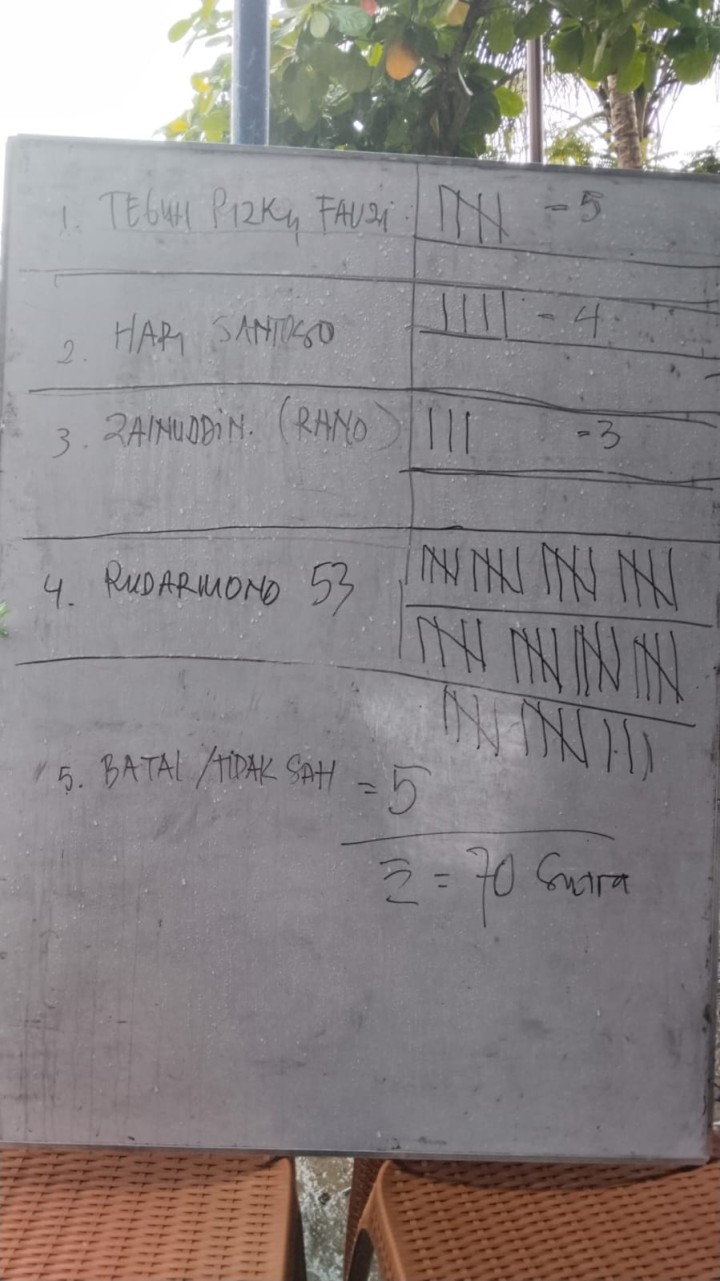 1. TEGUH RIZKY FAUZI = 5
2. HARI SANTOSO = 4
3. ZAINUDDIN. (RANO) = 3
4. RUDARMONO 53
5. BATAL / TIDAK SAH = 5
Σ = 70 Suara